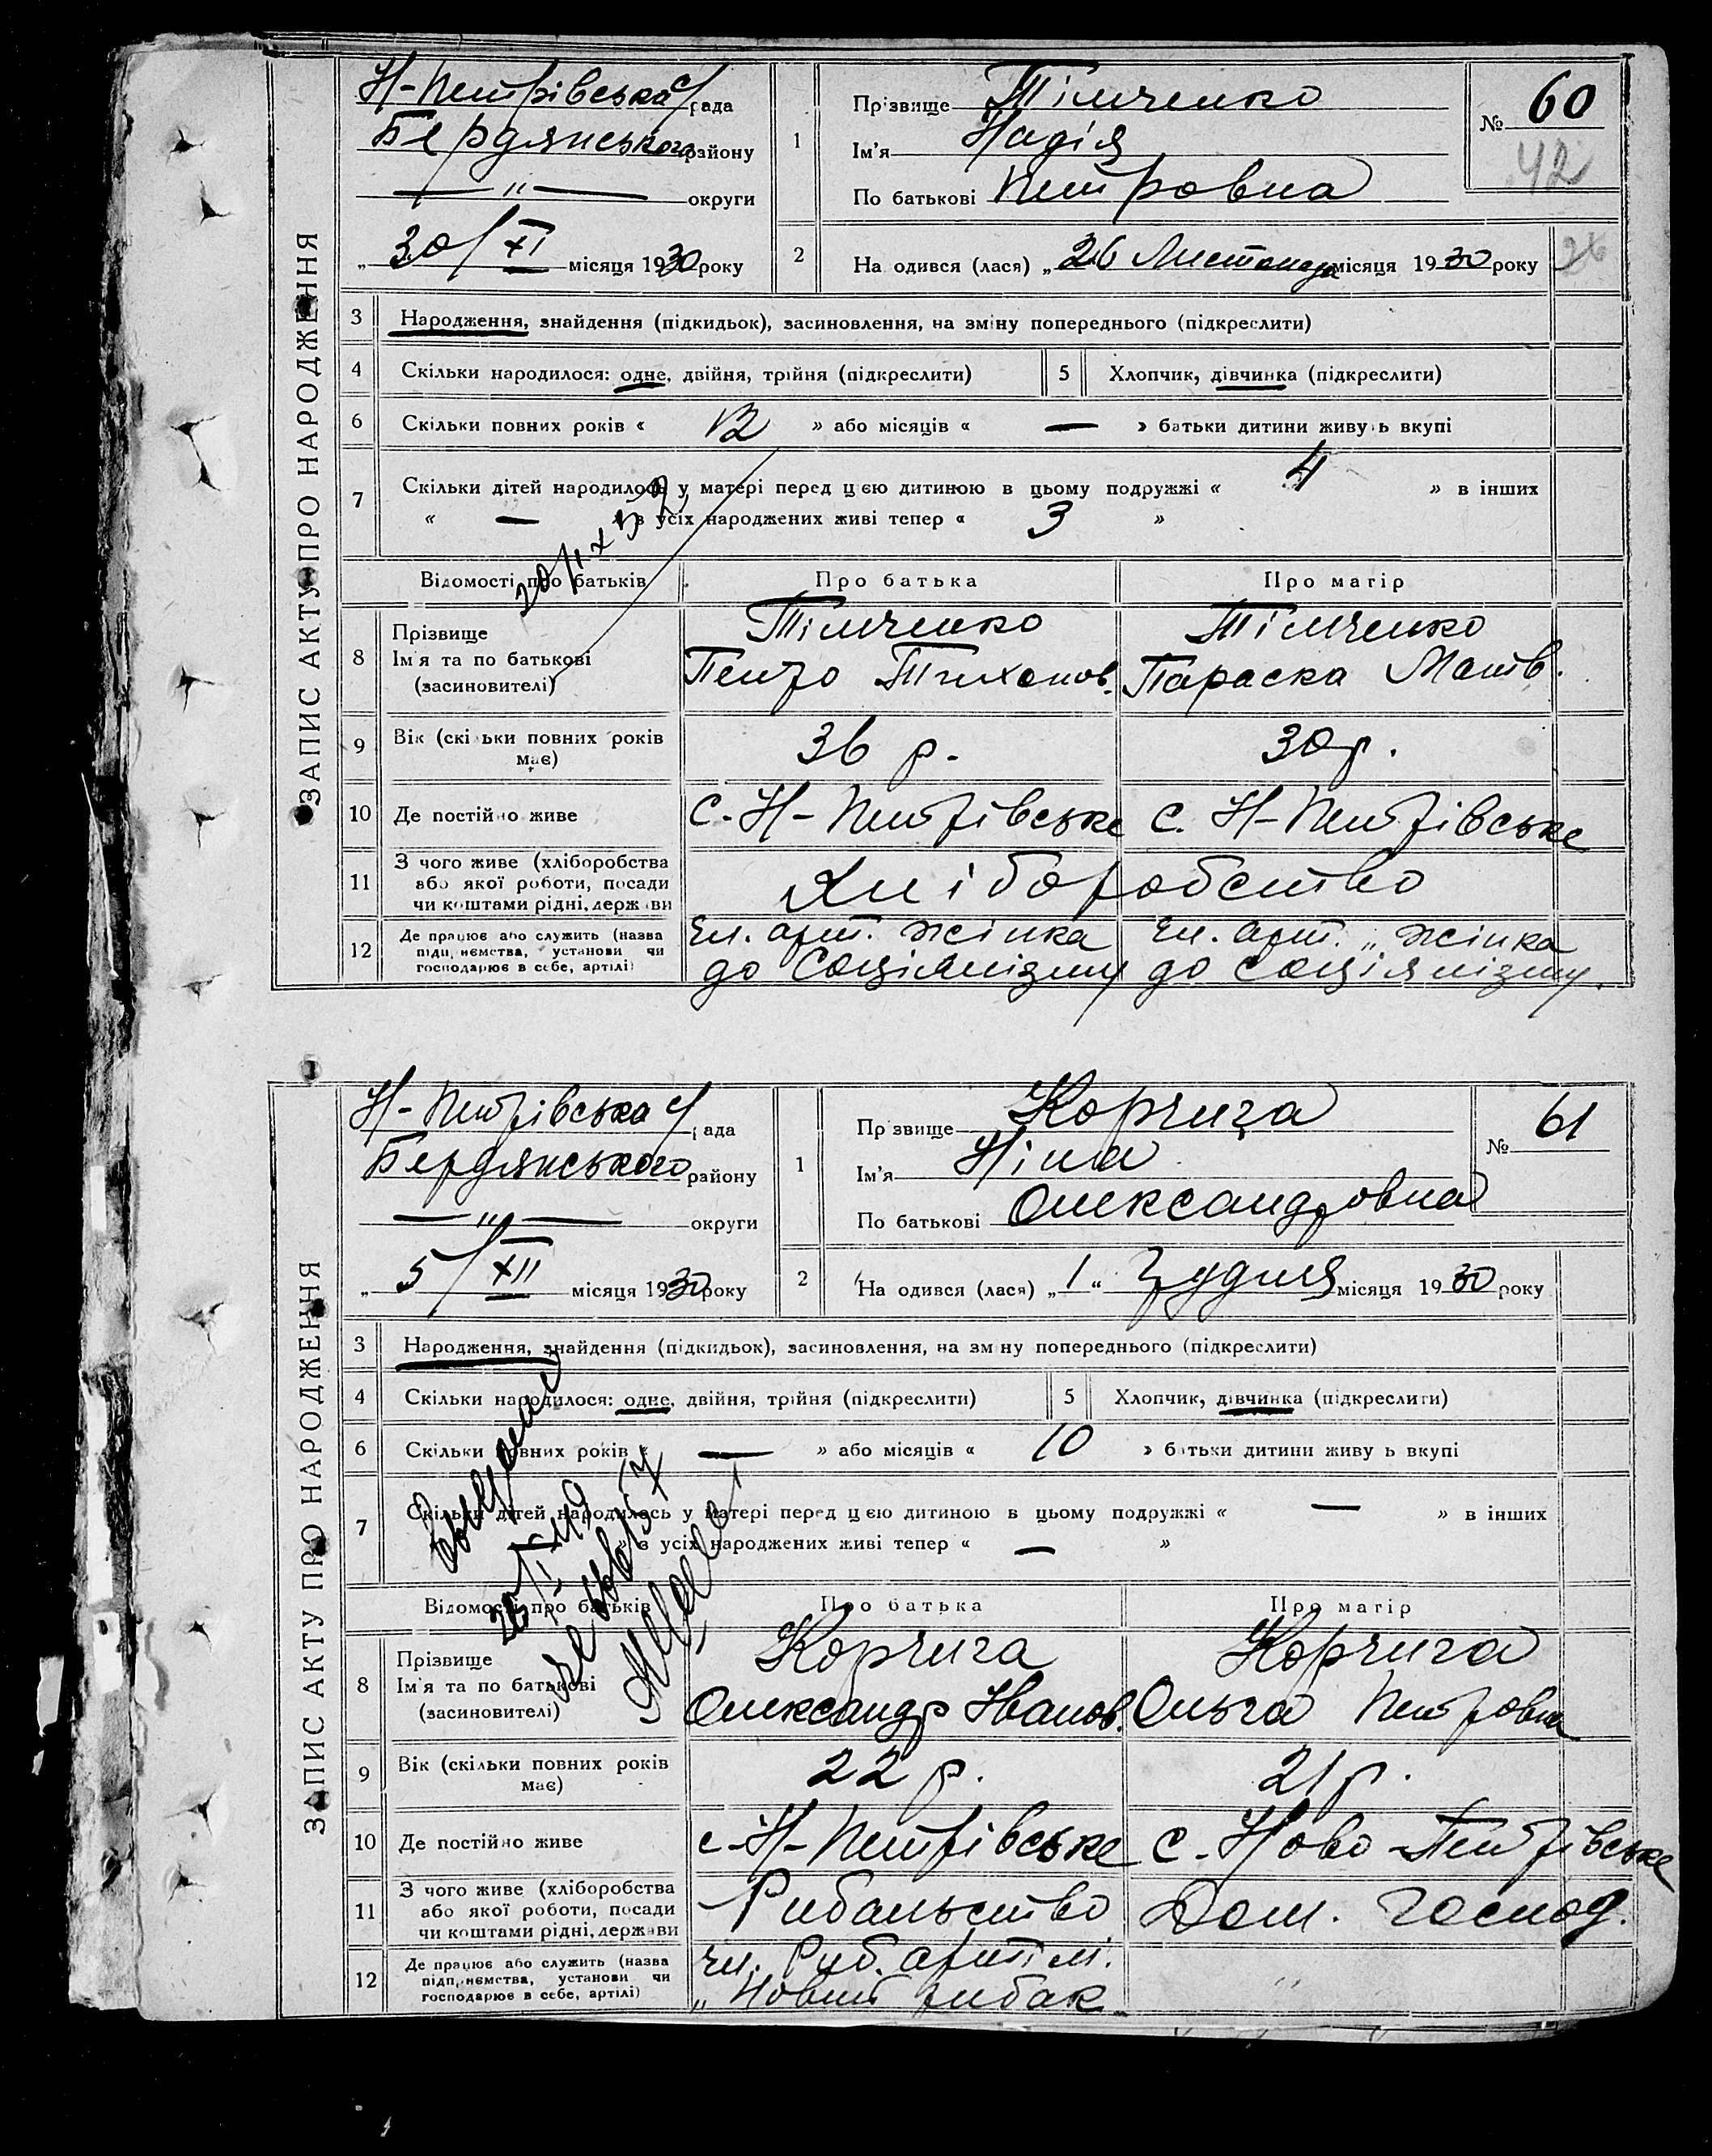 ЗАПИС АКТУ ПРО НАРОДЖЕННЯ
Н-Петрівська с/рада
Бердянського району
— „ — округи
„30/XI місяця 1930 року
1 Прізвище Тімченко
Ім'я Надія
По батькові Петровна
№ 60
42
2 На одився (лася) „26 Листопада місяця 1930 року
26
3 Народження, знайдення (підкидьок), засиновлення, на зміну попереднього (підкреслити)
4 Скільки народилося: одне, двійня, трійня (підкреслити) 5 Хлопчик, дівчинка (підкреслити)
6 Скільки повних років « 12 » або місяців « — » батьки дитини живуть вкупі
7 Скільки дітей народилось у матері перед цією дитиною в цьому подружжі « 4 » в інших
« — » з усіх народжених живі тепер « 3 »
Відомості про батьків Про батька Про матір
8 Прізвище Ім'я та по батькові (засновителі)
Тімченко Тімченко
Петро Тихонов. Параска Матв.
9 Вік (скільки повних років має) 36 р. 30 р.
10 Де постійно живе с. Н-Петрівське с. Н-Петрівське
11 З чого живе (хліборобства
або якої роботи, посади
чи коштами рідні, держави
Хліборобство
12 Де працює або служить (назва
підприємства, установи чи
господарює в себе, артілі)
Чл. арт. жінка Чл. арт. „жінка
до соціялізму до соціялізму.
ЗАПИС АКТУ ПРО НАРОДЖЕННЯ
Н-Петрівська с/рада
Бердянського району
— „ — округи
„5/XII місяця 1930 року
1 Прізвище Корчига
Ім'я Ніна
По батькові Олександровна
№ 61
2 На одився (лася) „1“ Грудня місяця 1930 року
3 Народження, знайдення (підкидьок), засиновлення, на зміну попереднього (підкреслити)
4 Скільки народилося: одне, двійня, трійня (підкреслити) 5 Хлопчик, дівчинка (підкреслити)
6 Скільки повних років « — » або місяців « 10 » батьки дитини живуть вкупі
7 Скільки дітей народилось у матері перед цією дитиною в цьому подружжі « — » в інших
» з усіх народжених живі тепер « — »
Відомості про батьків Про батька Про матір
8 Прізвище Ім'я та по батькові (засиновителі)
Корчига Корчига
Олександр Іванов. Ольга Петровна
9 Вік (скільки повних років має) 22 р. 21 р.
10 Де постійно живе с. Н-Петрівське с. Ново-Петрівське
11 З чого живе (хліборобства
або якої роботи, посади
чи коштами рідні, держави
Рибальство Дом. господ.
12 Де працює або служить (назва
підприємства, установи чи
господарює в себе, артілі)
чл. Риб. артілі.
„Новий рибак„